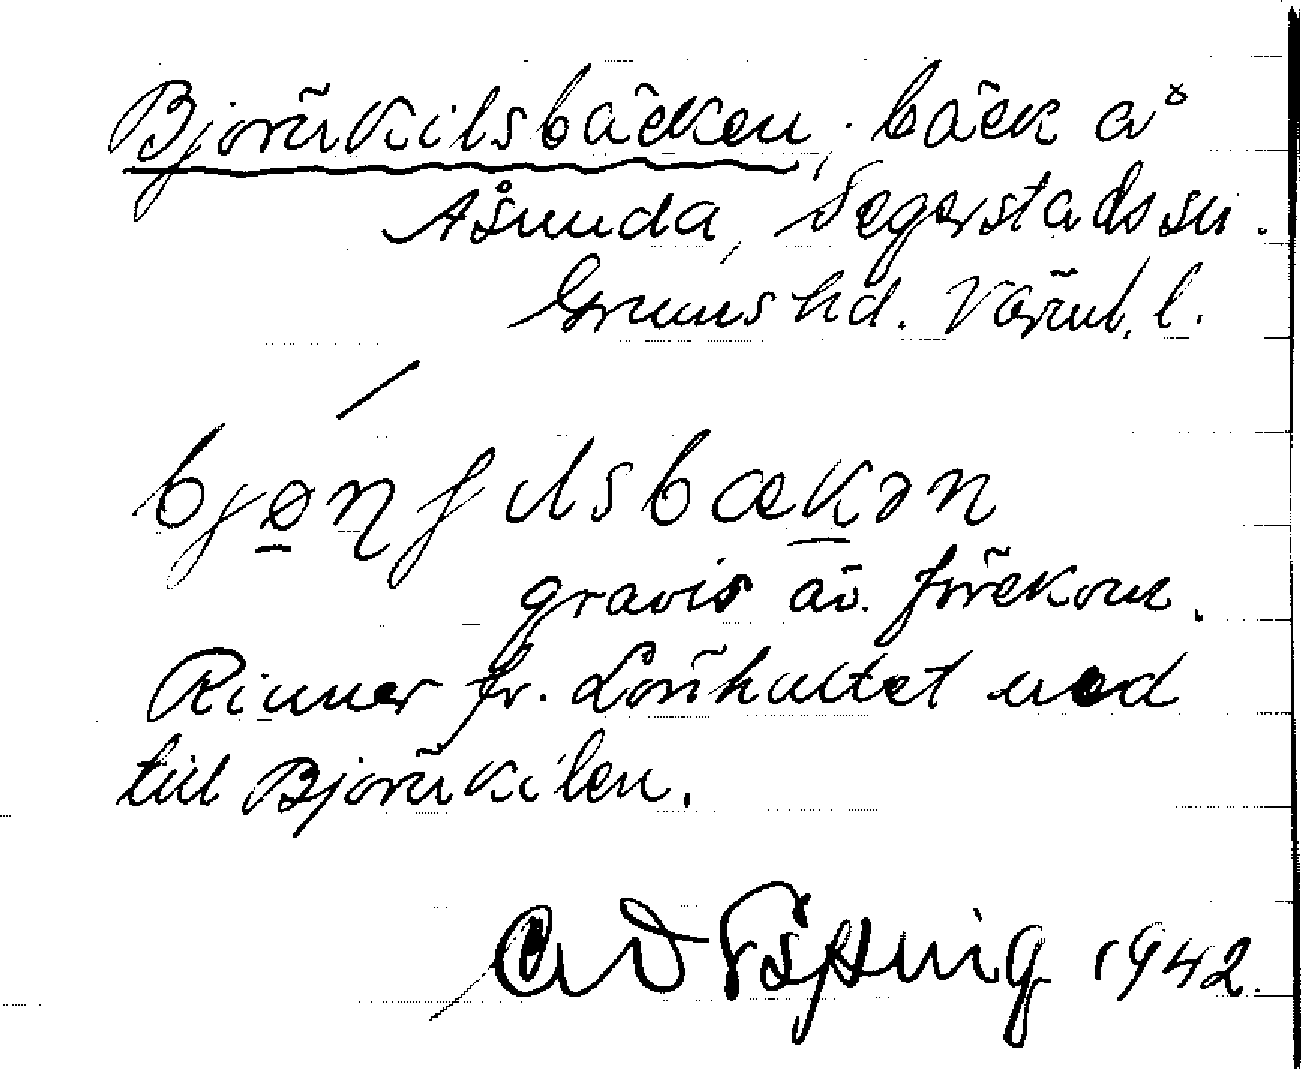 Björnkilsbäcken, bäck å
Åsunda, Segerstads sn.
Grums hd. Värml. l.
bjøɳʃilsbækən
gravis äv. förekom.
Rinner fr. Lönhultet ned
till Björnkilen.
1942.